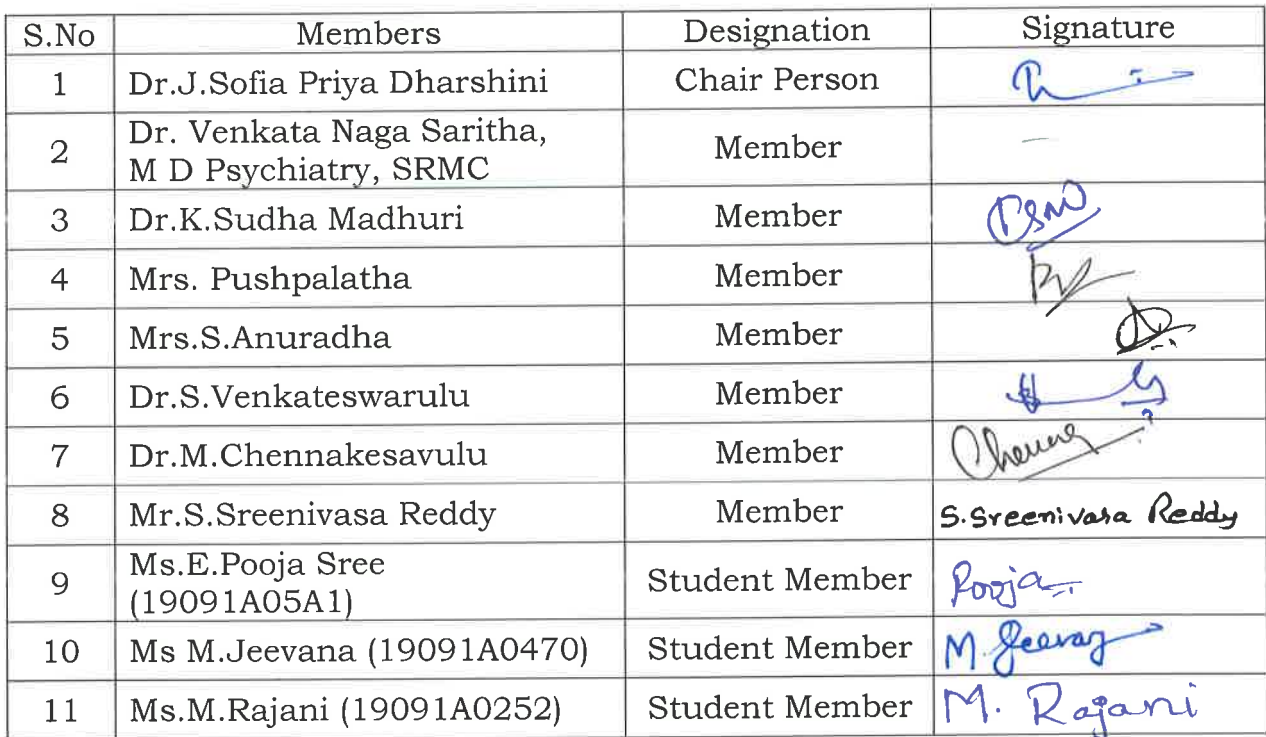 S.No Members Designation Signature
1 Dr.J.Sofia Priya Dharshini Chair Person
2 Dr. Venkata Naga Saritha, Member -
M D Psychiatry, SRMC
3 Dr.K.Sudha Madhuri Member
4 Mrs. Pushpalatha Member
5 Mrs.S.Anuradha Member
6 Dr.S.Venkateswarulu Member
7 Dr.M.Chennakesavulu Member
8 Mr.S.Sreenivasa Reddy Member S.Sreenivasa Reddy
9 Ms.E.Pooja Sree Student Member Pooja
(19091A05A1)
10 Ms M.Jeevana (19091A0470) Student Member M.
11 Ms.M.Rajani (19091A0252) Student Member M. Rajani